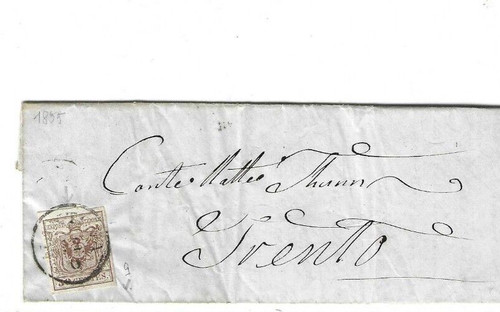 1855
Conte Matteo Thunn
Trento